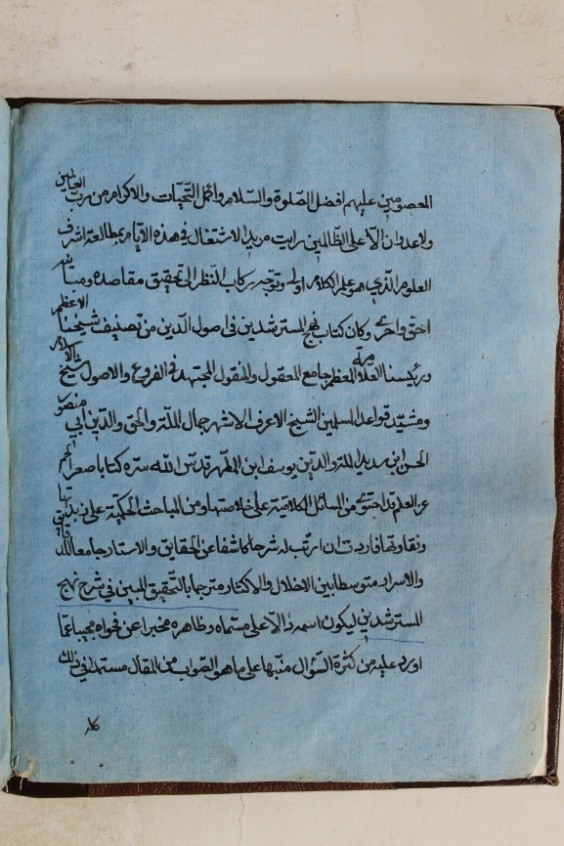 المعصومين عليهم افضل الصّلوة والسّلام واكمل التّحيّات والاكرام من ربّ العالمين
ولا عدوان الّا على الظّالمين رايت مريد الاشتغال في هذه الايّام بمطالعة اشرف
العلوم الّذي هو علم الكلام اولى وتوجّه ركاب النّظر الى تحقيق مقاصده ومسائله
احقّ واحرى وكان كتاب نهج المسترشدين في اصول الدّين من تصنيف شيخنا الاعظم
ورئيسنا العلّامة المعظم جامع المعقول والمنقول المجتهد في الفروع والاصول شيخ الاسلام
ومشيّد قواعد المسلمين الشيخ الاعرف الاشهر جمال الملّة والحق والدّين ابي منصور
الحسن ابن سديد الملّة والدّين يوسف ابن المطّهر قدّس اللّه سرّه كتابا صغر الحجم
غزر العلم قد احتوى من المسائل الكلاميّة على خلاصتها ومن المباحث الحكميّة على زبدتها
ونقاوتها فاردت ان ارتّب له شرحا كاشفا عن الحقايق والاستار جامعا للدقايق
والاسرار متوسطا بين الاخلال والاكثار مترجما بالتّحقيق المبين في شرح نهج
المسترشدين ليكون اسمه دالّا على مسمّاه وظاهره مخبرا عن فحواه مجيبا عمّا
اورد عليه من كثرة السّؤال منبّها على ما هو الصّواب من المقال مستمدا في ذلك